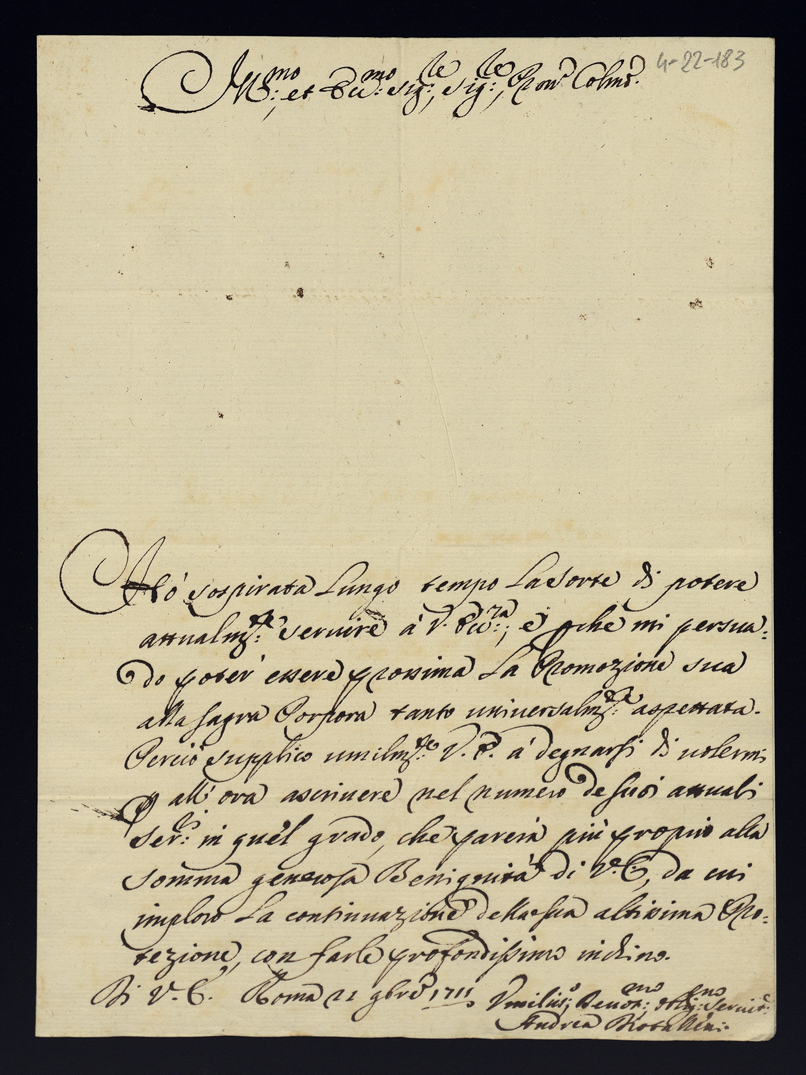 Ill.mo et Ecc.mo Sig.re, Sig.re, Pron. Colmo.
4-22-183
Hò sospirata lungo tempo la sorte di potere
attualm.te servire à V. Ecc.za, e p che mi persua=
do poter' essere prossima la Promozione sua
alla sagra Porpora tanto universalm.te aspettata.
Perciò supplico umilm.te V. E. a degnarsi di volermi
p all'ora ascrivere nel numero de suoi attuali
Ser.ri in quel grado, che parerà più proprio alla
somma generosa Benignità di V. E., da cui
imploro la continuazione della sua altissima Pro=
tezione, con farle profondissimo inchino.
Di V. E. Roma 21 9bre 1711 Vmiliss.o, Devot.mo, Oblig.mo Servit.e
Andrea